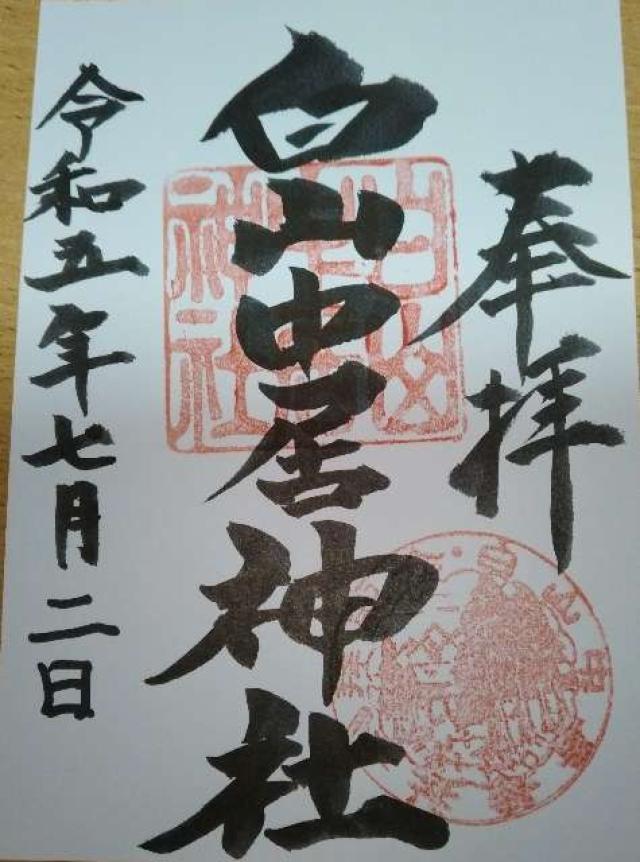 奉拝
白山中居神社
令和五年七月二日